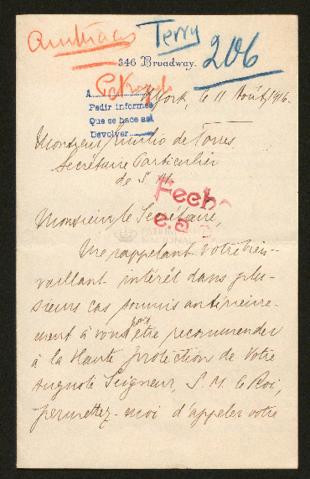 Terry
206
346 Broadway.
A
York, le 11 Août, 1916.
Pedir informes
Que se hace así
Devolver
Monsieur Emilio de Torres
Secrétaire Particulier
de S. M.
Fech
e.s
Monsieur le Secrétaire,
Me rappelant votre bien-
vaillant intérêt dans plu-
sieurs cas soumis antérieure-
ment à vous pour être recommender
à la Haute protection de Votre
Auguste Seigneur, S. M. le Roi,
permettez-moi d'appeler votre